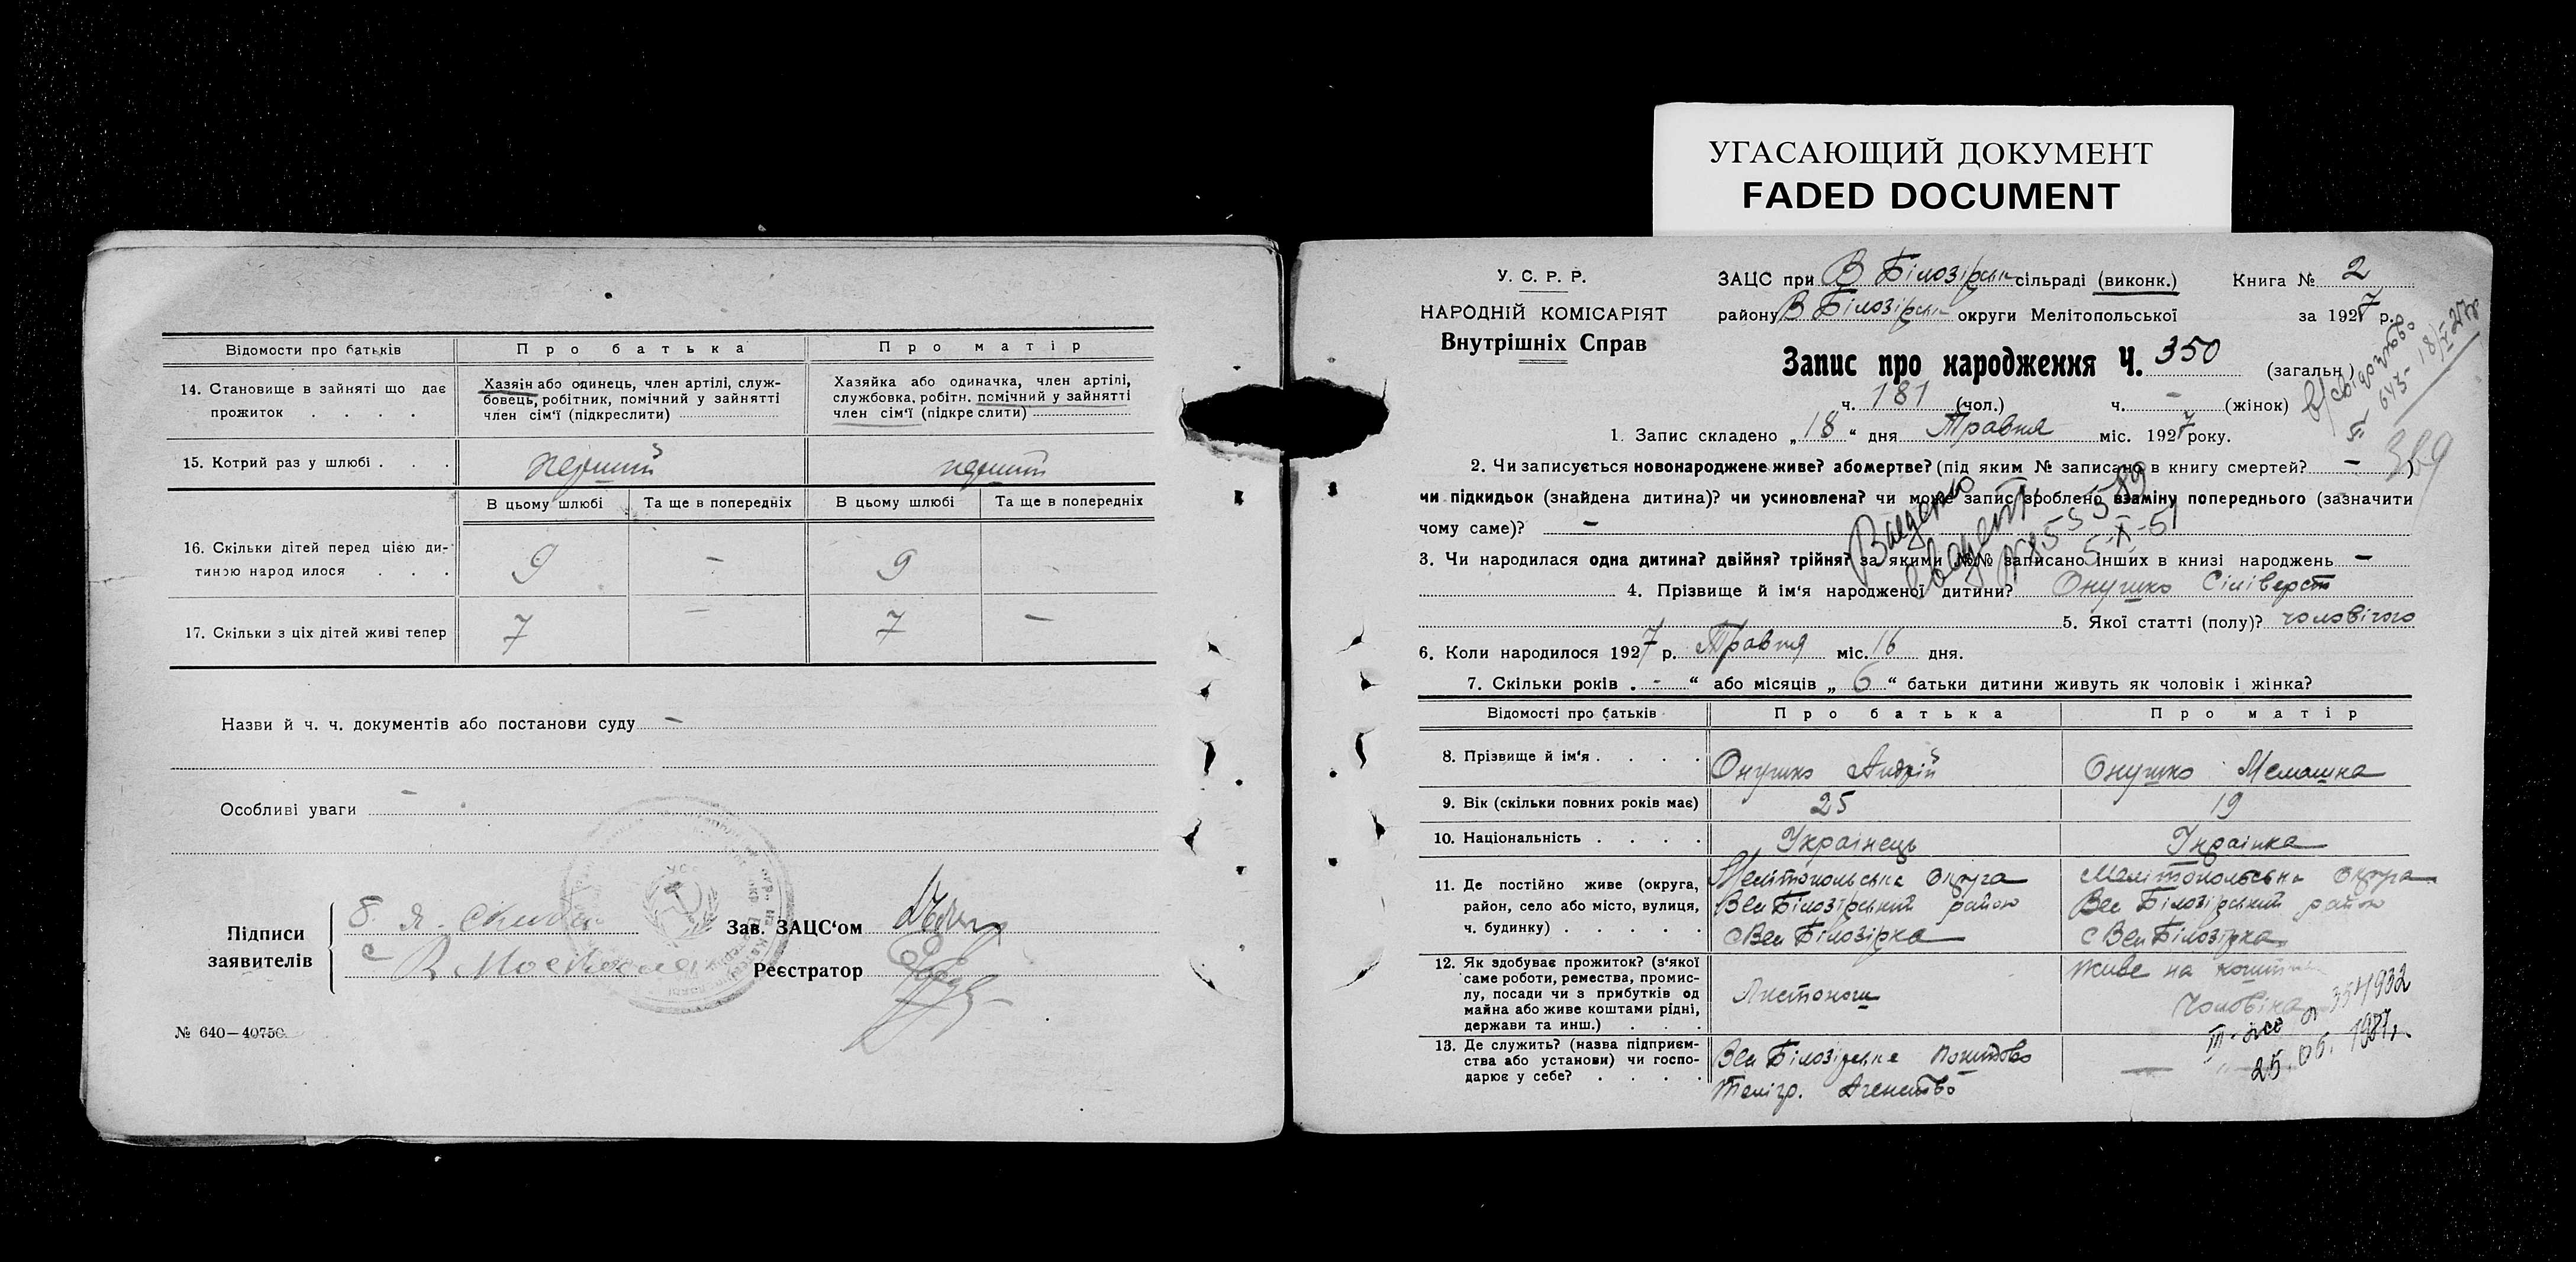 УГАСАЮЩИЙ ДОКУМЕНТ
FADED DOCUMENT
Відомости про батьків Про батька Про матір
14. Становище в зайняті що дає прожиток . . . .
Хазяін або одинець, член артілі, служ-
бовець, робітник, помічний у зайнятті
член сім'ї (підкреслити)
Хазяйка або одиначка, член артілі,
службовка, робітн. помічний у зайнятті
член сім'ї (підкреслити)
15. Котрий раз у шлюбі . . . перший перший
В цьому шлюбі Та ще в попередніх В цьому шлюбі Та ще в попередніх
16. Скільки дітей перед цією ди-
тиною народилося . . . 9 – 9
17. Скільки з ціх дітей живі тепер 7 – 7 –
Назви й ч. ч. документів або постанови суду –
Особливі уваги –
Підписи
заявителів
Зав. ЗАЦС'ом
Реєстратор
№ 640—40750
У. С. Р. Р.
НАРОДНІЙ КОМІСАРІЯТ
Внутрішніх Справ
ЗАЦС при В Білозірськ сільраді (виконк.) Книга № 2
району В Білозірськ округи Мелітопольської за 1927 р.
Запис про народження Ч. 350 (загальн.)
ч. 181 (чол.) ч. – (жінок)
643- 18/V 27р
349
1. Запис складено „18“ дня Травня міс. 1927 року.
2. Чи записується новонароджене живе? або мертве? (під яким № записано в книгу смертей? – )
чи підкидьок (знайдена дитина)? чи усиновлена? чи може запис зроблено взаміну попереднього (зазначити
чому саме)? –
3. Чи народилася одна дитина? двійня? трійня? за якими №№ записано інших в книзі народжень –
4. Прізвище й ім'я народженої дитини? Онушко Сіліверст
5. Якої статті (полу)? чоловічого
6. Коли народилося 1927 р. Травня міс. 16 дня.
7. Скільки років „ - “ або місяців „ 6 “ батьки дитини живуть як чоловік і жінка?
5-X-51
Відомості про батьків Про батька Про матір
8. Прізвище й ім'я . . . . Онушко Андрій Онушко Мелашка
9. Вік (скільки повних років має) 25 19
10. Національність . . . . Українець Українка
11. Де постійно живе (округа,
район, село або місто, вулиця,
ч. будинку) . . . . .
Мелітопольська округа
Вел Білозірський район
с Вел Білозірка
Мелітопольська округа
Вел Білозірський район
с Вел Білозірка
12. Як здобуває прожиток? (з'якої
саме роботи, ремества, промис-
лу, посади чи з прибутків од
майна або живе коштами рідні,
держави та инш.) . . .
Листоноша
Живе на кошти
Чоловіка
354902
25.06.1987г
13. Де служить? (назва підприєм-
ства або установи) чи госпо-
дарює у себе? . . . .
Вел Білозірське поштово
Телігр. Агенство